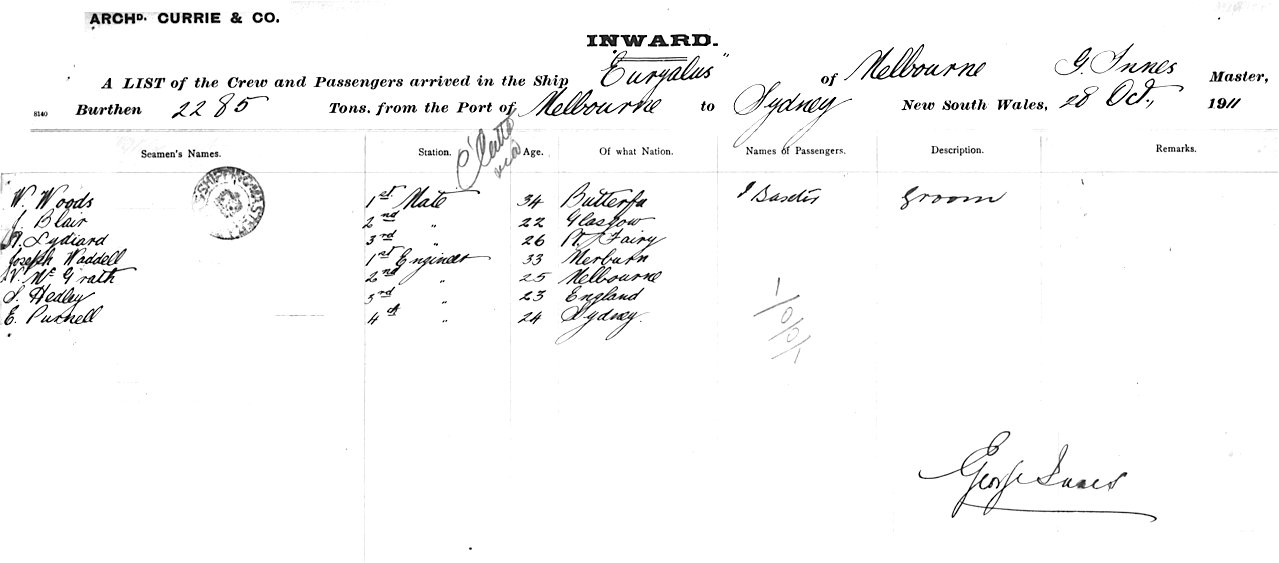 ARCHD. CURRIE & CO.
INWARD.
A LIST of the Crew and Passengers arrived in the Ship "Euryalus" of Melbourne G. Innes Master,
8140 Burthen 2285 Tons. from the Port of Melbourne to Sydney New South Wales, 28 Oct., 1911
C'cutta via
Seamen's Names. Station. Age. Of what Nation. Names of Passengers. Description. Remarks.
W. Woods 1st Mate 34 J Baxter groom
J. Blair 2nd " 22 Glasgow
Lydiard 3rd " 26 Pt. Fairy
Joseph Waddell 1st Engineer 33
McGrath 2nd " 25 Melbourne
S. Hedley 3rd " 23 England
E. Purnell 4th " 24 Sydney.
SHIPPING MASTER
1/0/0/1
George Innes